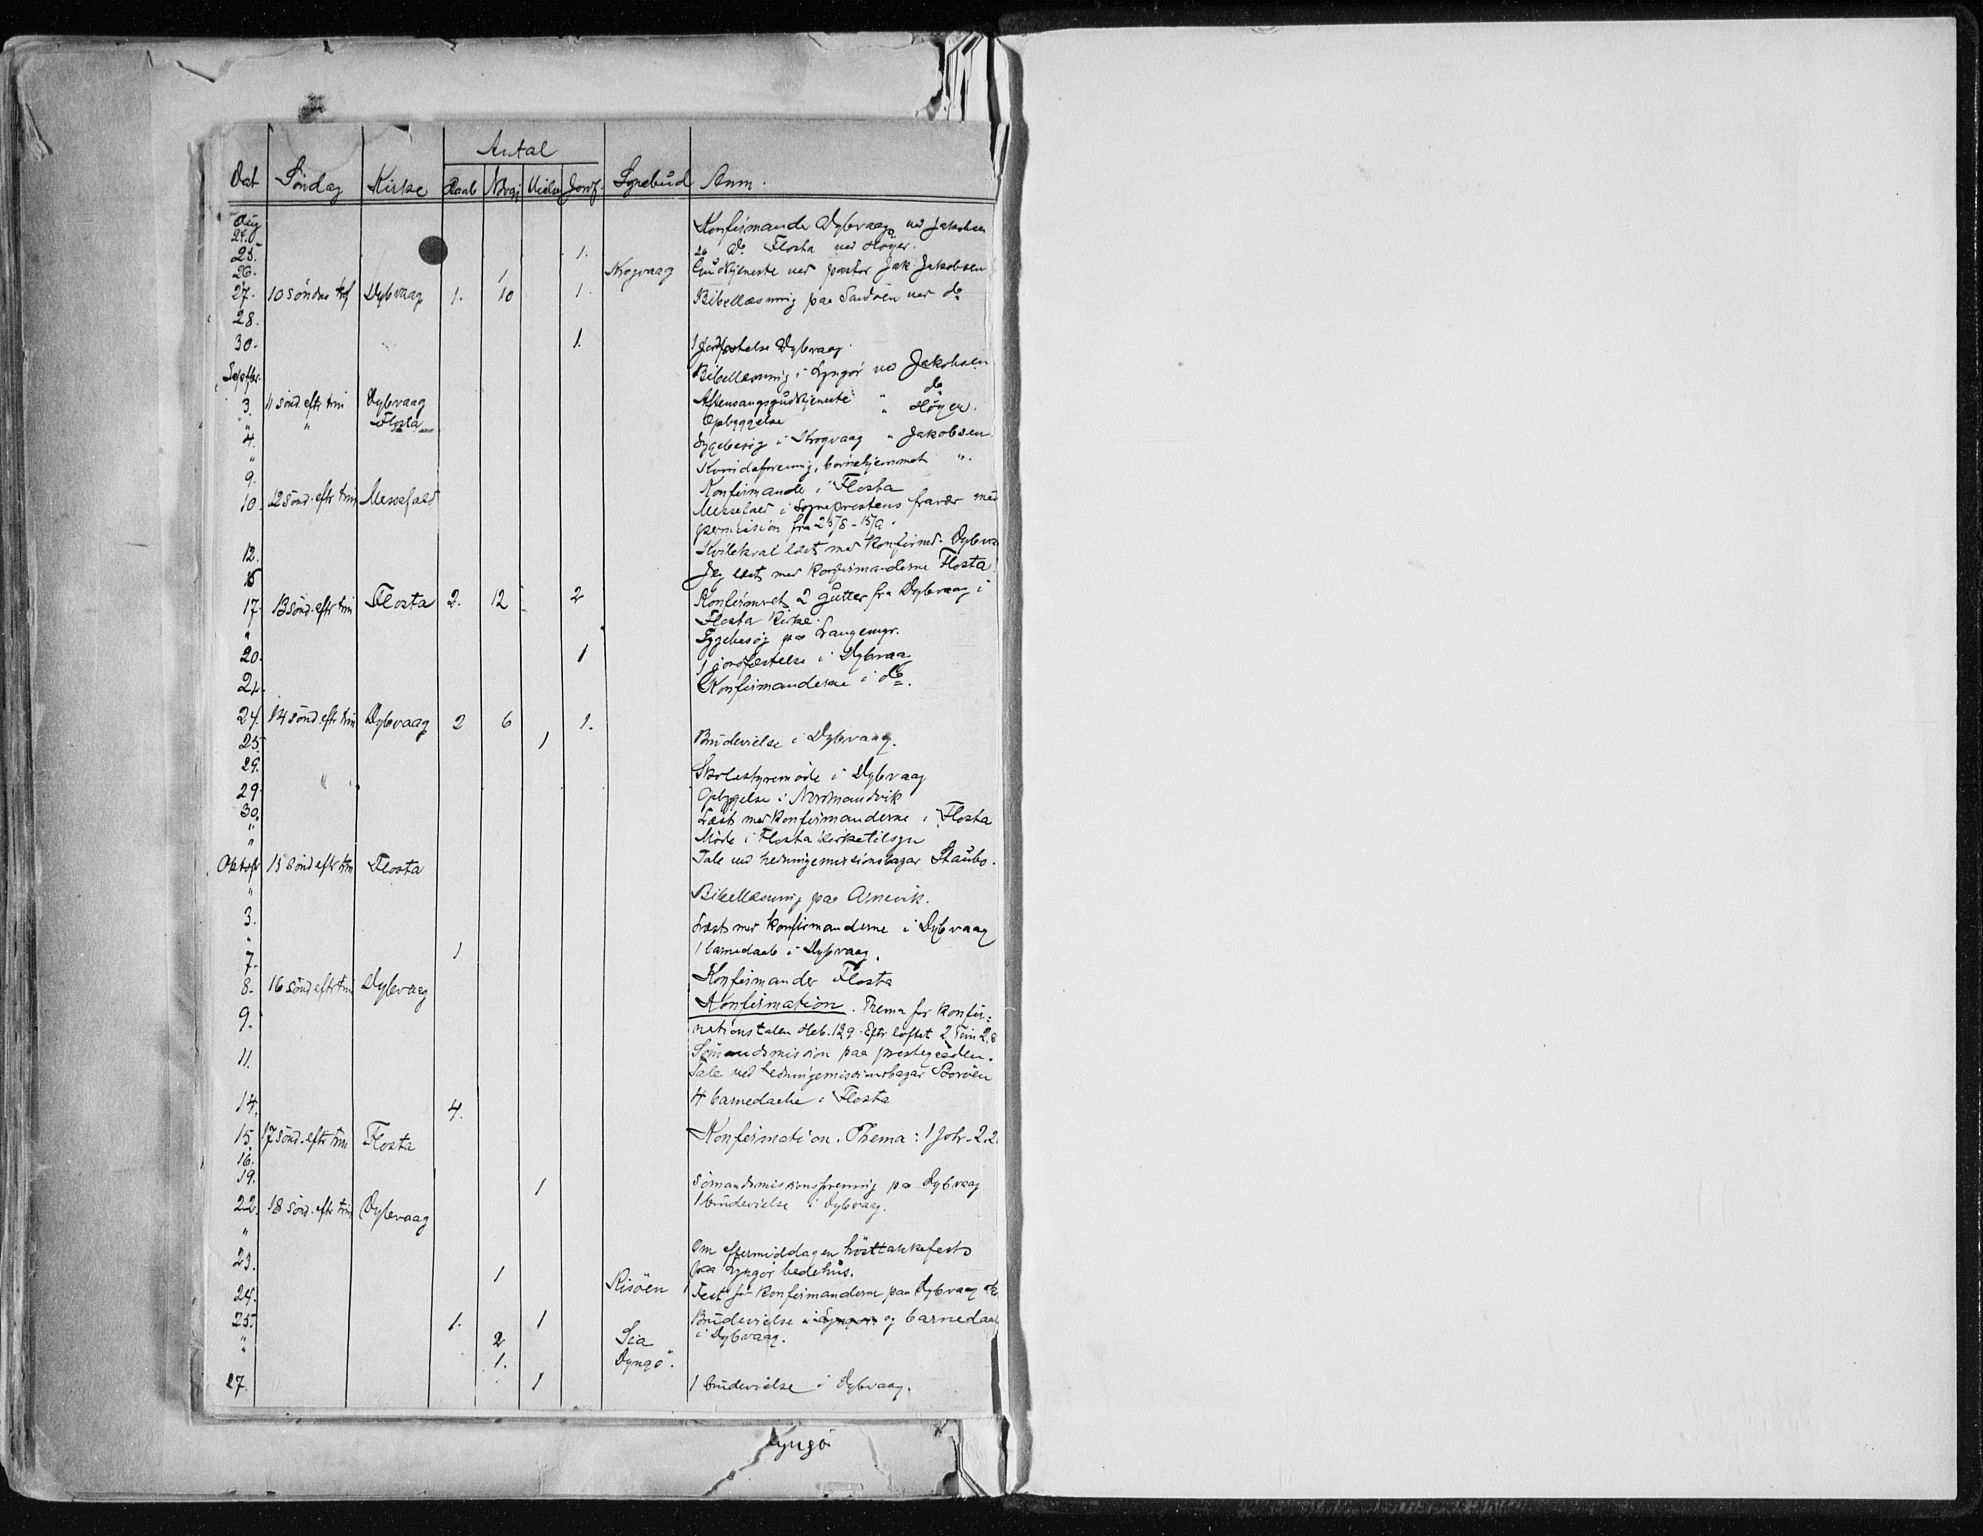 Antal
Dat Søndag Kirke Daab Nvgj Vielse Jordf. Sognebud Anm.
Aug
24. Konfirmander Dybvaag ved Jakobsen
25. 1. 26 do Flosta ved Höyer.
26. 1 Skogvaag Gudstjeneste ved pastor Jak Jakobsen
27. 10 söndag tref Dybvaag 1. 10 1. Bibellæsning paa Sandöen ved do
28.
30. 1. 1 jordfæstelse Dybvaag.
Septbr. Bibellæsning i Lyngör ved Jakobsen
3. 11 sönd. eftr trin Dybvaag Aftensangsgudstjeneste " do
" " Flosta Opbyggelse " Höyer.
4. Sygebesög i Skogvaag " Jakobsen.
" Kvindeforening, barnehjemmet ".
9. Konfirmande i Flosta
10. 12 sönd. eftr trin Messefald Messefald i Sogneprestens fravær med
permission fra 25/8 - 15/9.
12. læst med Konfirmd. Dybva
15 Jeg læst med konfirmanderne Flosta
17. 13 sönd. eftr trin Flosta 2. 12 2 Konfirmert 2 gutter fra Dybvaag i
Flosta Kirke.
" Sygebesög paa Langemyr.
20. 1 1 jordfæstelse i Dybvaa
21. Konfirmanderne i do.
24. 14 sönd. eftr trin Dybvaag 2 6 1.
25. 1 Brudevielse i Dybvaag.
29. " Skolestyremöde i Dybvaag
29. Opbyggelse i Normandvik
30. Læst med Konfirmanderne i Flosta
" Möde i Flosta kirketilsyn
Oktobr 15 sönd eftr trin Flosta Tale ved hedningemissionsbazar Staubo.
" Bibellæsning paa Arnevik.
3. Læst med konfirmanderne i Dybvaag
" 1 1 barnedaab i Dybvaag.
7. Konfirmander Flosta
8. 16 sönd eftr trin Dybvaag Konfirmation. Thema for konfir=
9. mationstalen Heb. 12 9. Eftr löftet 2 Tim 2.8
11. Sömandsmission paa prestegaarden.
Tale ved hedningemissionsbazar Borøen
14. 4. 4 barnedaabe i Flosta
15. 17 sönd. eftr trin Flosta Konfirmation. Thema: 1 Joh. 2.2
16.
19. 1 Sömandsmissionsforening paa Dybvaag
22. 18 sönd. eftr trin Dybvaag 1 brudevielse i Dybvaag.
" Om eftermiddagen hösttakkefest
23. 1 Risöen paa Lyngör bedehus.
24. Fest for konfirmanderne paa Dybvaag
25. 1. 1 Brudevielse i Lyngör og barnedaab
" 2 Sia i Dybvaag.
1. Dyngö.
27. 1 1 brudevielse i Dybvaag.
Lyngö